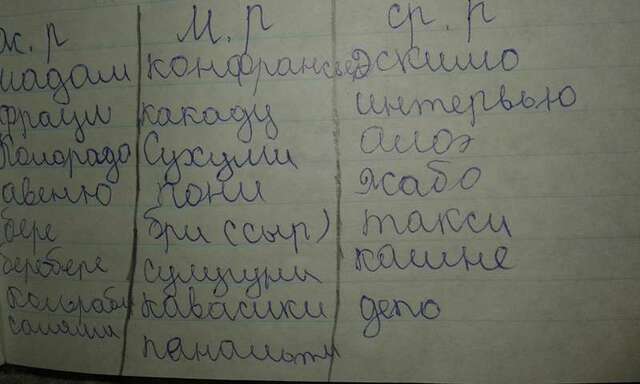 ж. р м. р ср. р
мадам конфрансье эскимо
фрау какаду интервью
Колорадо Сухуми алоэ
авеню пони жабо
бере бри (сыр) такси
беребере сулугуни кашне
кольраби кавасаки депо
салями